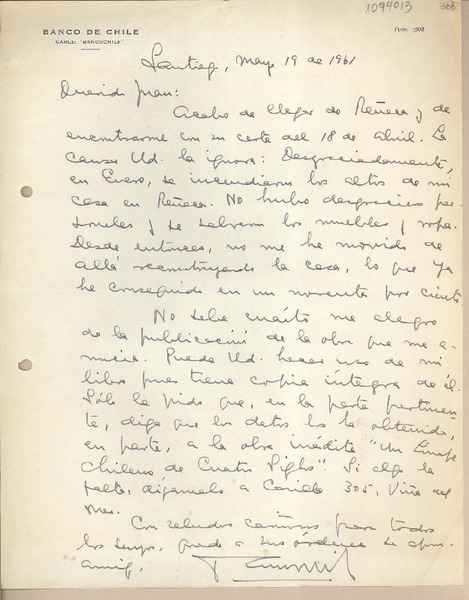 1094013 368
BANCO DE CHILE
CABLE: "BANCOCHILE"
Form. 1502
Santiago, Mayo 19 de 1961
Querido Juan:
Acabo de llegar de Reñaca y de
encontrarme con su carta del 18 de Abril. La
causa Ud. la ignora: Desgraciadamente,
en Enero, se incendiaron los altos de mi
casa en Reñaca. No hubo desgracias per-
sonales y se salvaron los muebles y ropa.
Desde entonces, no me he movido de
allá reconstruyendo la casa, lo que ya
he conseguido en un noventa por ciento.
No sabe cuánto me alegro
de la publicación de la obra que me a-
nuncia. Puede Ud. hacer uso de mi
libro pues tiene copia íntegra de él.
Sólo le pido que, en la parte pertinen-
te, diga que los datos los ha obtenido,
en parte, a la obra inédita "Un Linaje
Chileno de Cuatro Siglos". Si algo le
falta, dígamelo a 305, Viña del
Mar.
Con saludos cariñosos para todos
los suyos, quedo a sus órdenes su afmo.
amigo,